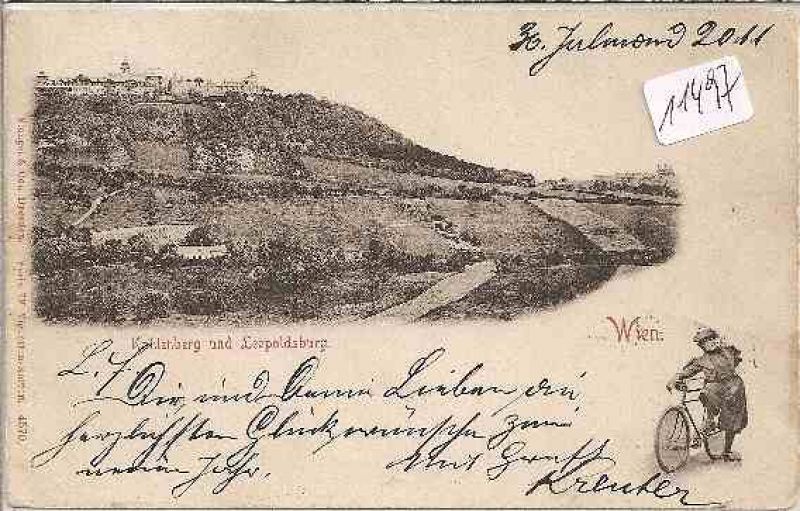 30. Julmond 2011
11497
Kahlenberg und Leopoldsburg.
Wien.
L. F.
Dir und Deinen Lieben die
herzlichsten Glückwünsche zum
neuen Jahr. Mit Gruß
Kreuter